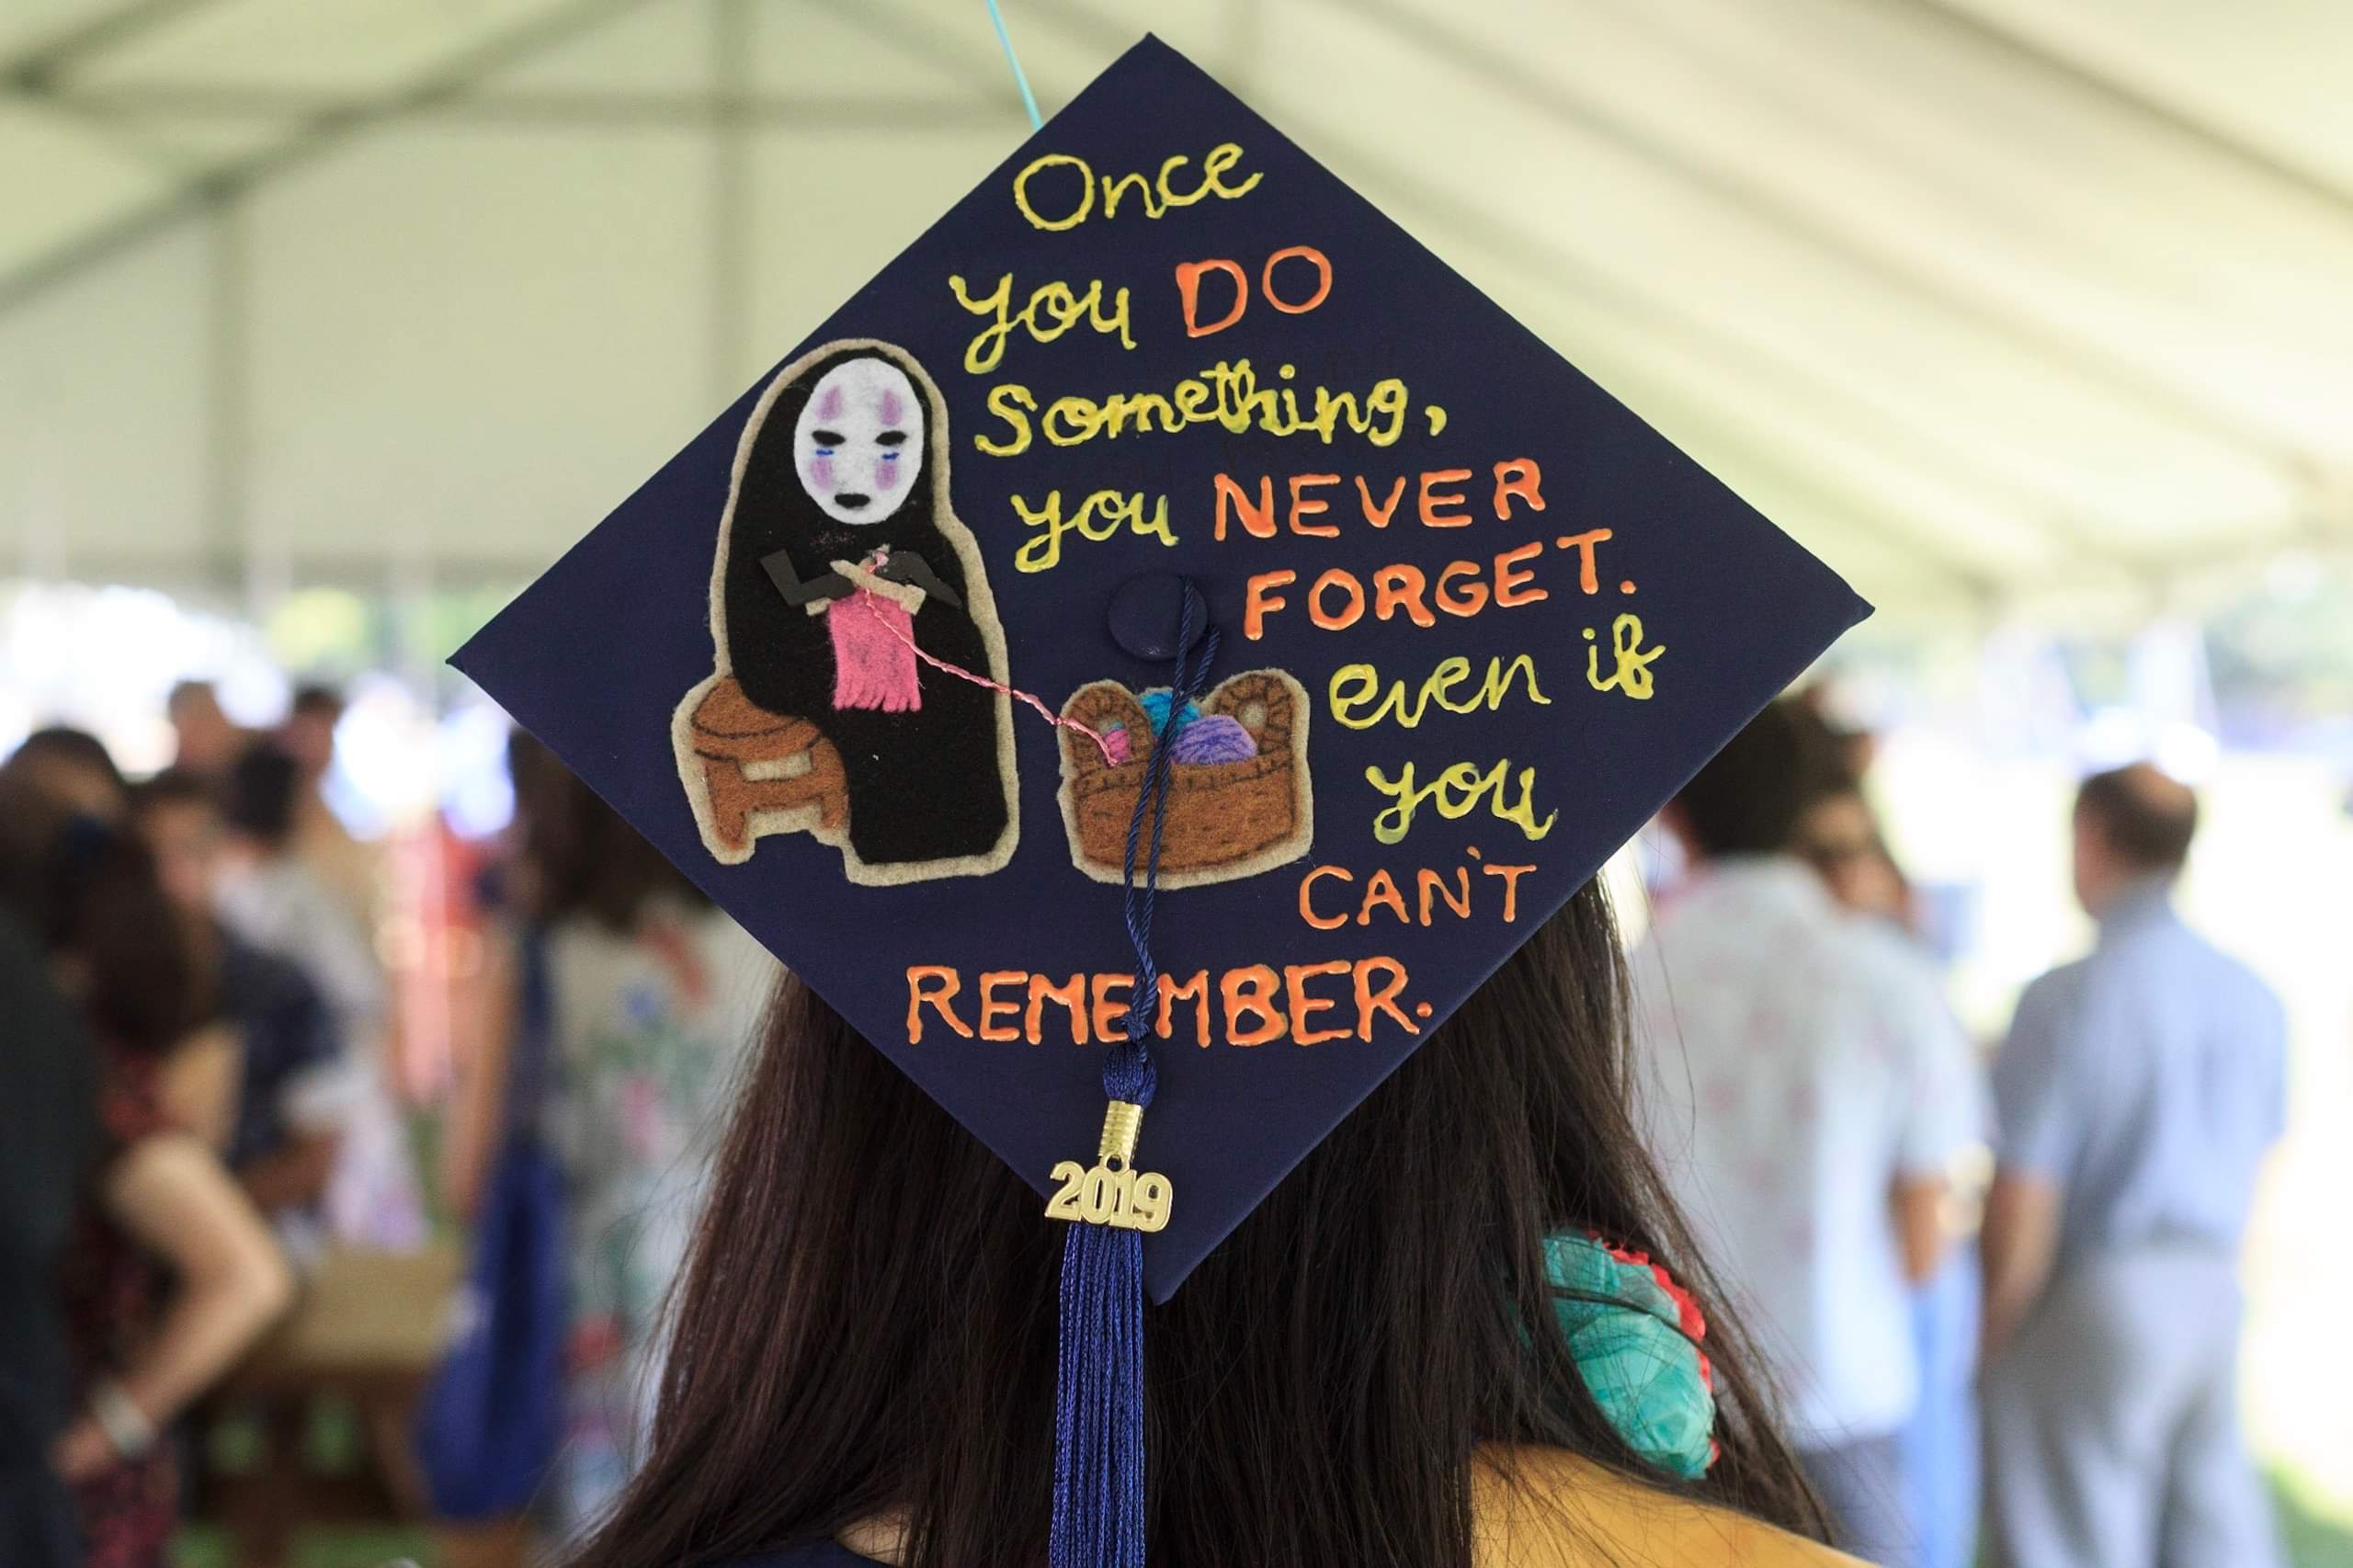 Once
you DO
Something,
you NEVER
FORGET.
even if
you
CAN'T
REMEMBER.
2019